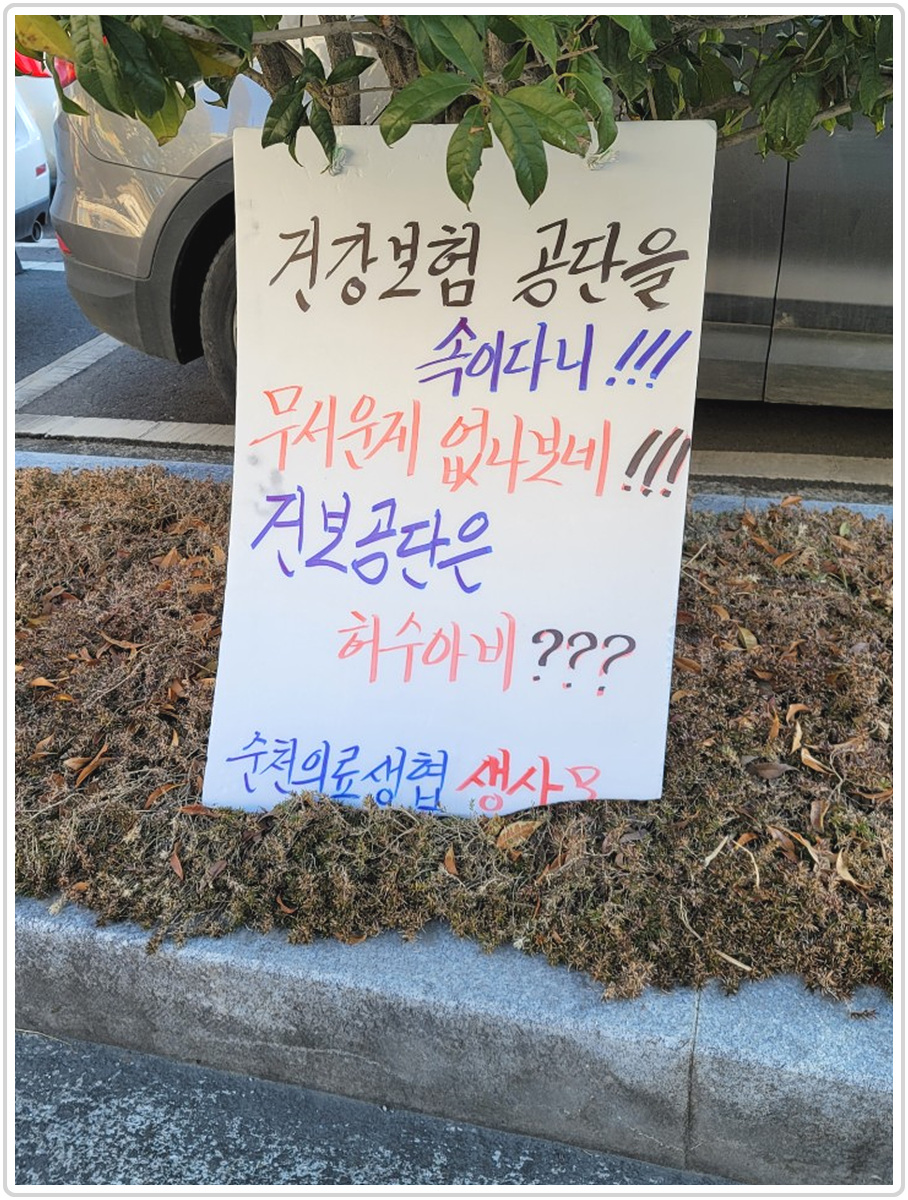 건강보험 공단을
속이다니!!!
무서운지 없나보네!!!
건보공단은
허수아비???
순천의료생협 생사모